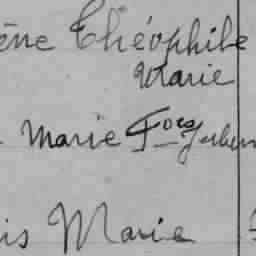 ène Théophile
Marie
Marie Fois
is Marie